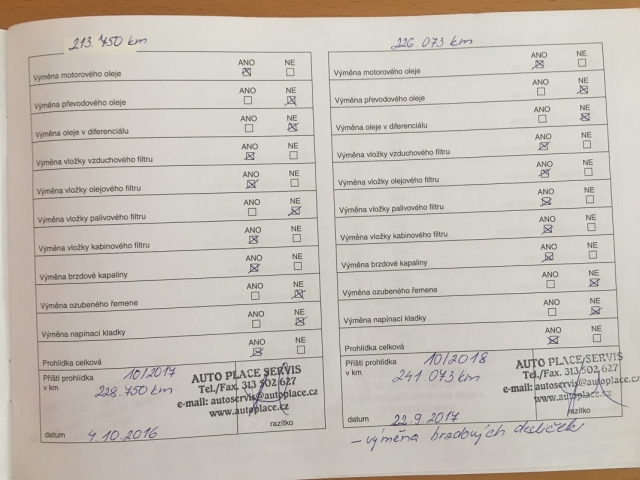 213.750 km
ANO NE
Výměna motorového oleje
ANO NE
Výměna převodového oleje
ANO NE
Výměna oleje v diferenciálu
ANO NE
Výměna vložky vzduchového filtru
ANO NE
Výměna vložky olejového filtru
ANO NE
Výměna vložky palivového filtru
ANO NE
Výměna vložky kabinového filtru
ANO NE
Výměna brzdové kapaliny
ANO NE
Výměna ozubeného řemene
ANO NE
Výměna napínací kladky
ANO NE
Prohlídka celková
Příští prohlídka 10/2017
v km 228.750 km
AUTO PLACE SERVIS
Tel./Fax. 313 502 627
e-mail: autoservis@autoplace.cz
www.autoplace.cz
datum 4.10.2016 razítko
226.073 km
ANO NE
Výměna motorového oleje
ANO NE
Výměna převodového oleje
ANO NE
Výměna oleje v diferenciálu
ANO NE
Výměna vložky vzduchového filtru
ANO NE
Výměna vložky olejového filtru
ANO NE
Výměna vložky palivového filtru
ANO NE
Výměna vložky kabinového filtru
ANO NE
Výměna brzdové kapaliny
ANO NE
Výměna ozubeného řemene
ANO NE
Výměna napínací kladky
ANO NE
Prohlídka celková
Příští prohlídka 10/2018
v km 241.073 km
AUTO PLACE SERVIS
Tel./Fax. 313 502 627
e-mail: autoservis@autoplace.cz
www.autoplace.cz
datum 22.9.2017 razítko
- výměna brzdových destiček